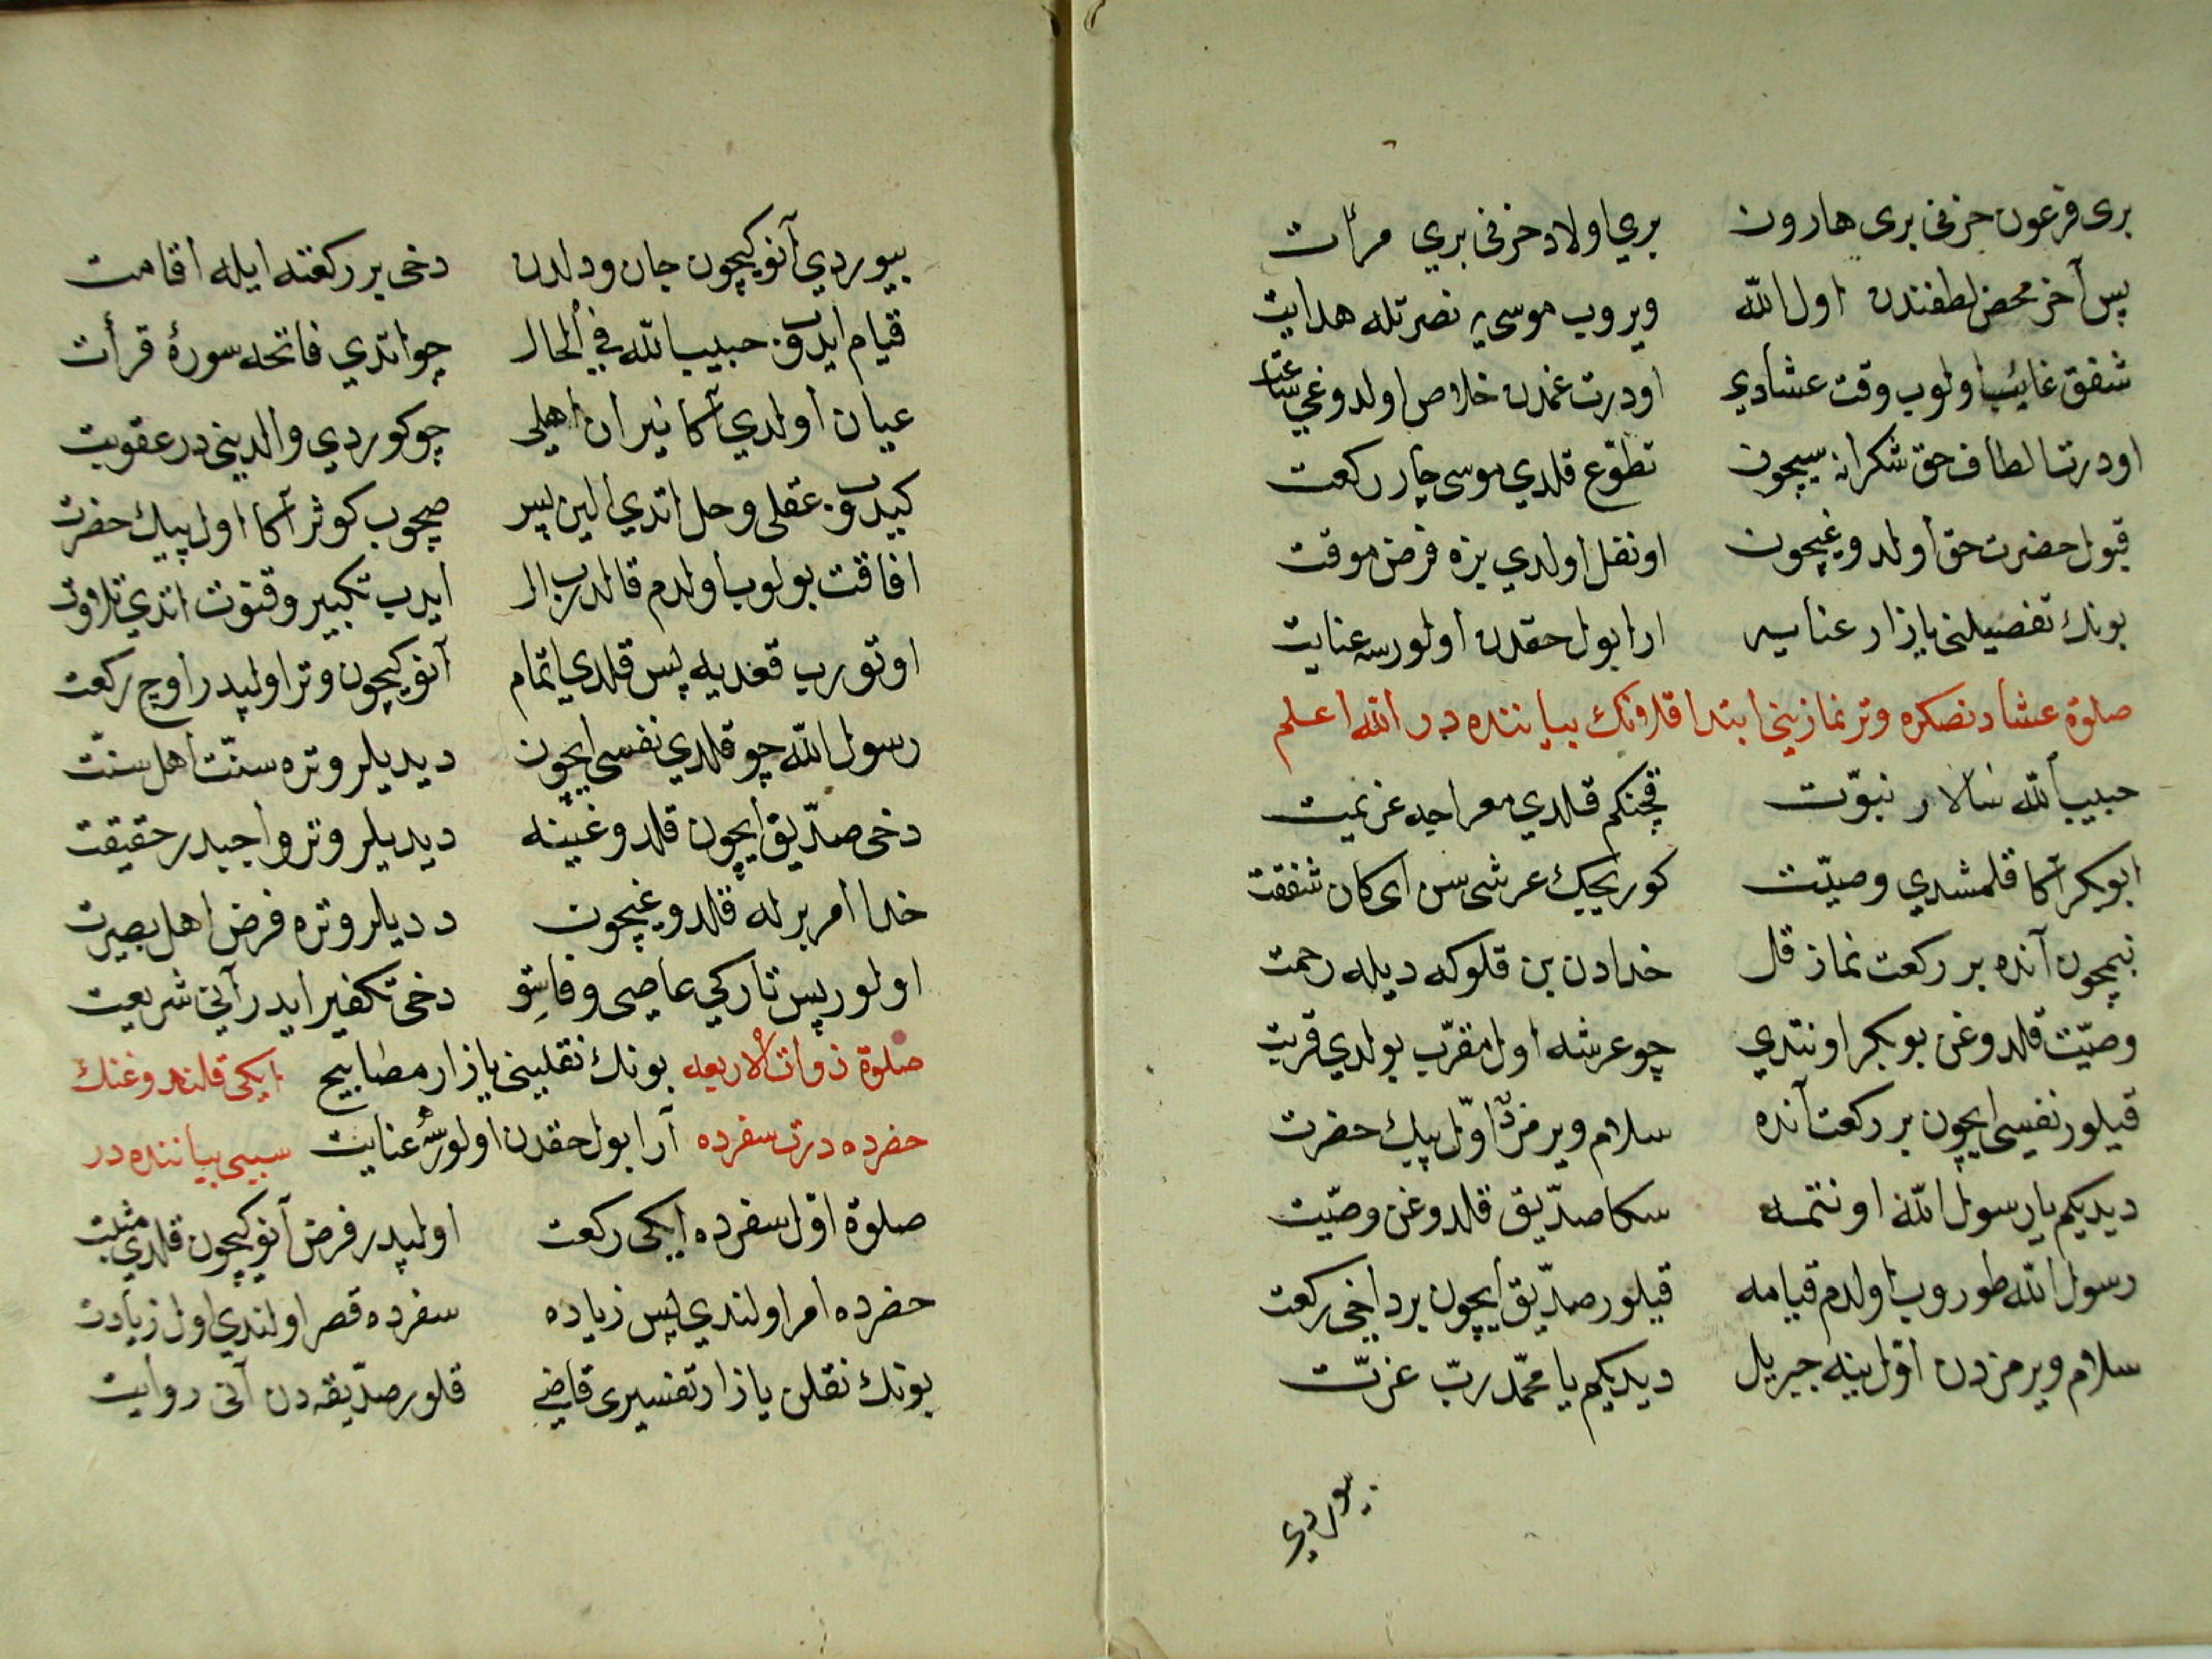 بری فرعون حزنی بری هارون بري اولاد حزنی بري مرأت
پس آخر محض لطفندن اول الله ویروب موسی یه نصرتله هدایت
شفق غائب اولوب وقت عشادي اودرت غمدن خلاص اولدوغي ساعت
اودرت الطاف حق شکرانه سیچون تطوّع قلدي موسی چار رکعت
قبول حضرت حق اولدوغیچون اونفل اولدي بزه فرض موقت
بونك تفصیلنی یازار عنایه ارا بول حقدن اولورسه عنایت
صلوة عشادنصکره وتر نمازینی ابتدا قلدونك بیاننده در الله اعلم
حبیب الله سالار نبوّت قچنکم قلدي معراجه عزیمت
ابوبکر آکا قلمشدي وصیّت کوریجیك عرشی سن ای کان شفقت
نیمچون آنده بر رکعت نماز قل خدادن بن قلوکه دیله رحمت
وصیّت قلدوغن بوبکر اونتدي چو عرشه اول مقرّب بولدي قربت
قیلور نفسی ایچون بر رکعت آنده سلام ویرمزدن اوّل پیك حضرت
دیدیکم یا رسول الله اونتمه سکا صدّیق قلدوغن وصیّت
رسول الله طوروب اولدم قیامه قیلور صدّیق ایچون بر داخی رکعت
سلام ویرمزدن اوّل ینه جبریل دیدیکم یا محمّد ربّ عزّت
بیوردي
بیوردي آنوکیچون جان ودلدن دخی بر رکعته ایله اقامت
قیام ایدوب حبیب الله في الحال چو اتدي فاتحه سورۀ قرأت
عیان اولدي آکا نیران اهلی چو کوردي والدینی در عقوبت
کیدوب عقلی وحل اتدي الین پس صچوب کوثر آکا اول پیك حضرت
افاقت بولوب اولدم قالدرب ال ایدب تکبیر وقنوت اتدي تلاوت
اوتورب قعدیه پس قلدي اتمام آنوکیچون وتر اولپدر اوچ رکعت
رسول الله چو قلدي نفسی ایچون دیدیلر وتره سنّت اهل سنّت
دخی صدّیق ایچون قلدوغینه دیدیلر وتر واجبدر حقیقت
خدا امر برله قلدوغیچون ددیلر وتره فرض اهل بصیرت
اولور پس تارکي عاصی وفاسق دخی تکفیر ایدر آنی شریعت
صلوة ذوات الاربعه بونك نقلینی یازار مصابیح ایکی قلندوغنك
حضرده درت سفرده آرا بول حقدن اولورسه عنایت سببی بیاننده در
صلوة اوّل سفرده ایکی رکعت اولپدر فرض آنوکیچون قلدي مثبت
حضرده امر اولندي پس زیاده سفرده قصر اولندي اول زیادت
بونك نقلن یازار تفسیری قاضي قلور صدّیقه دن آنی روایت